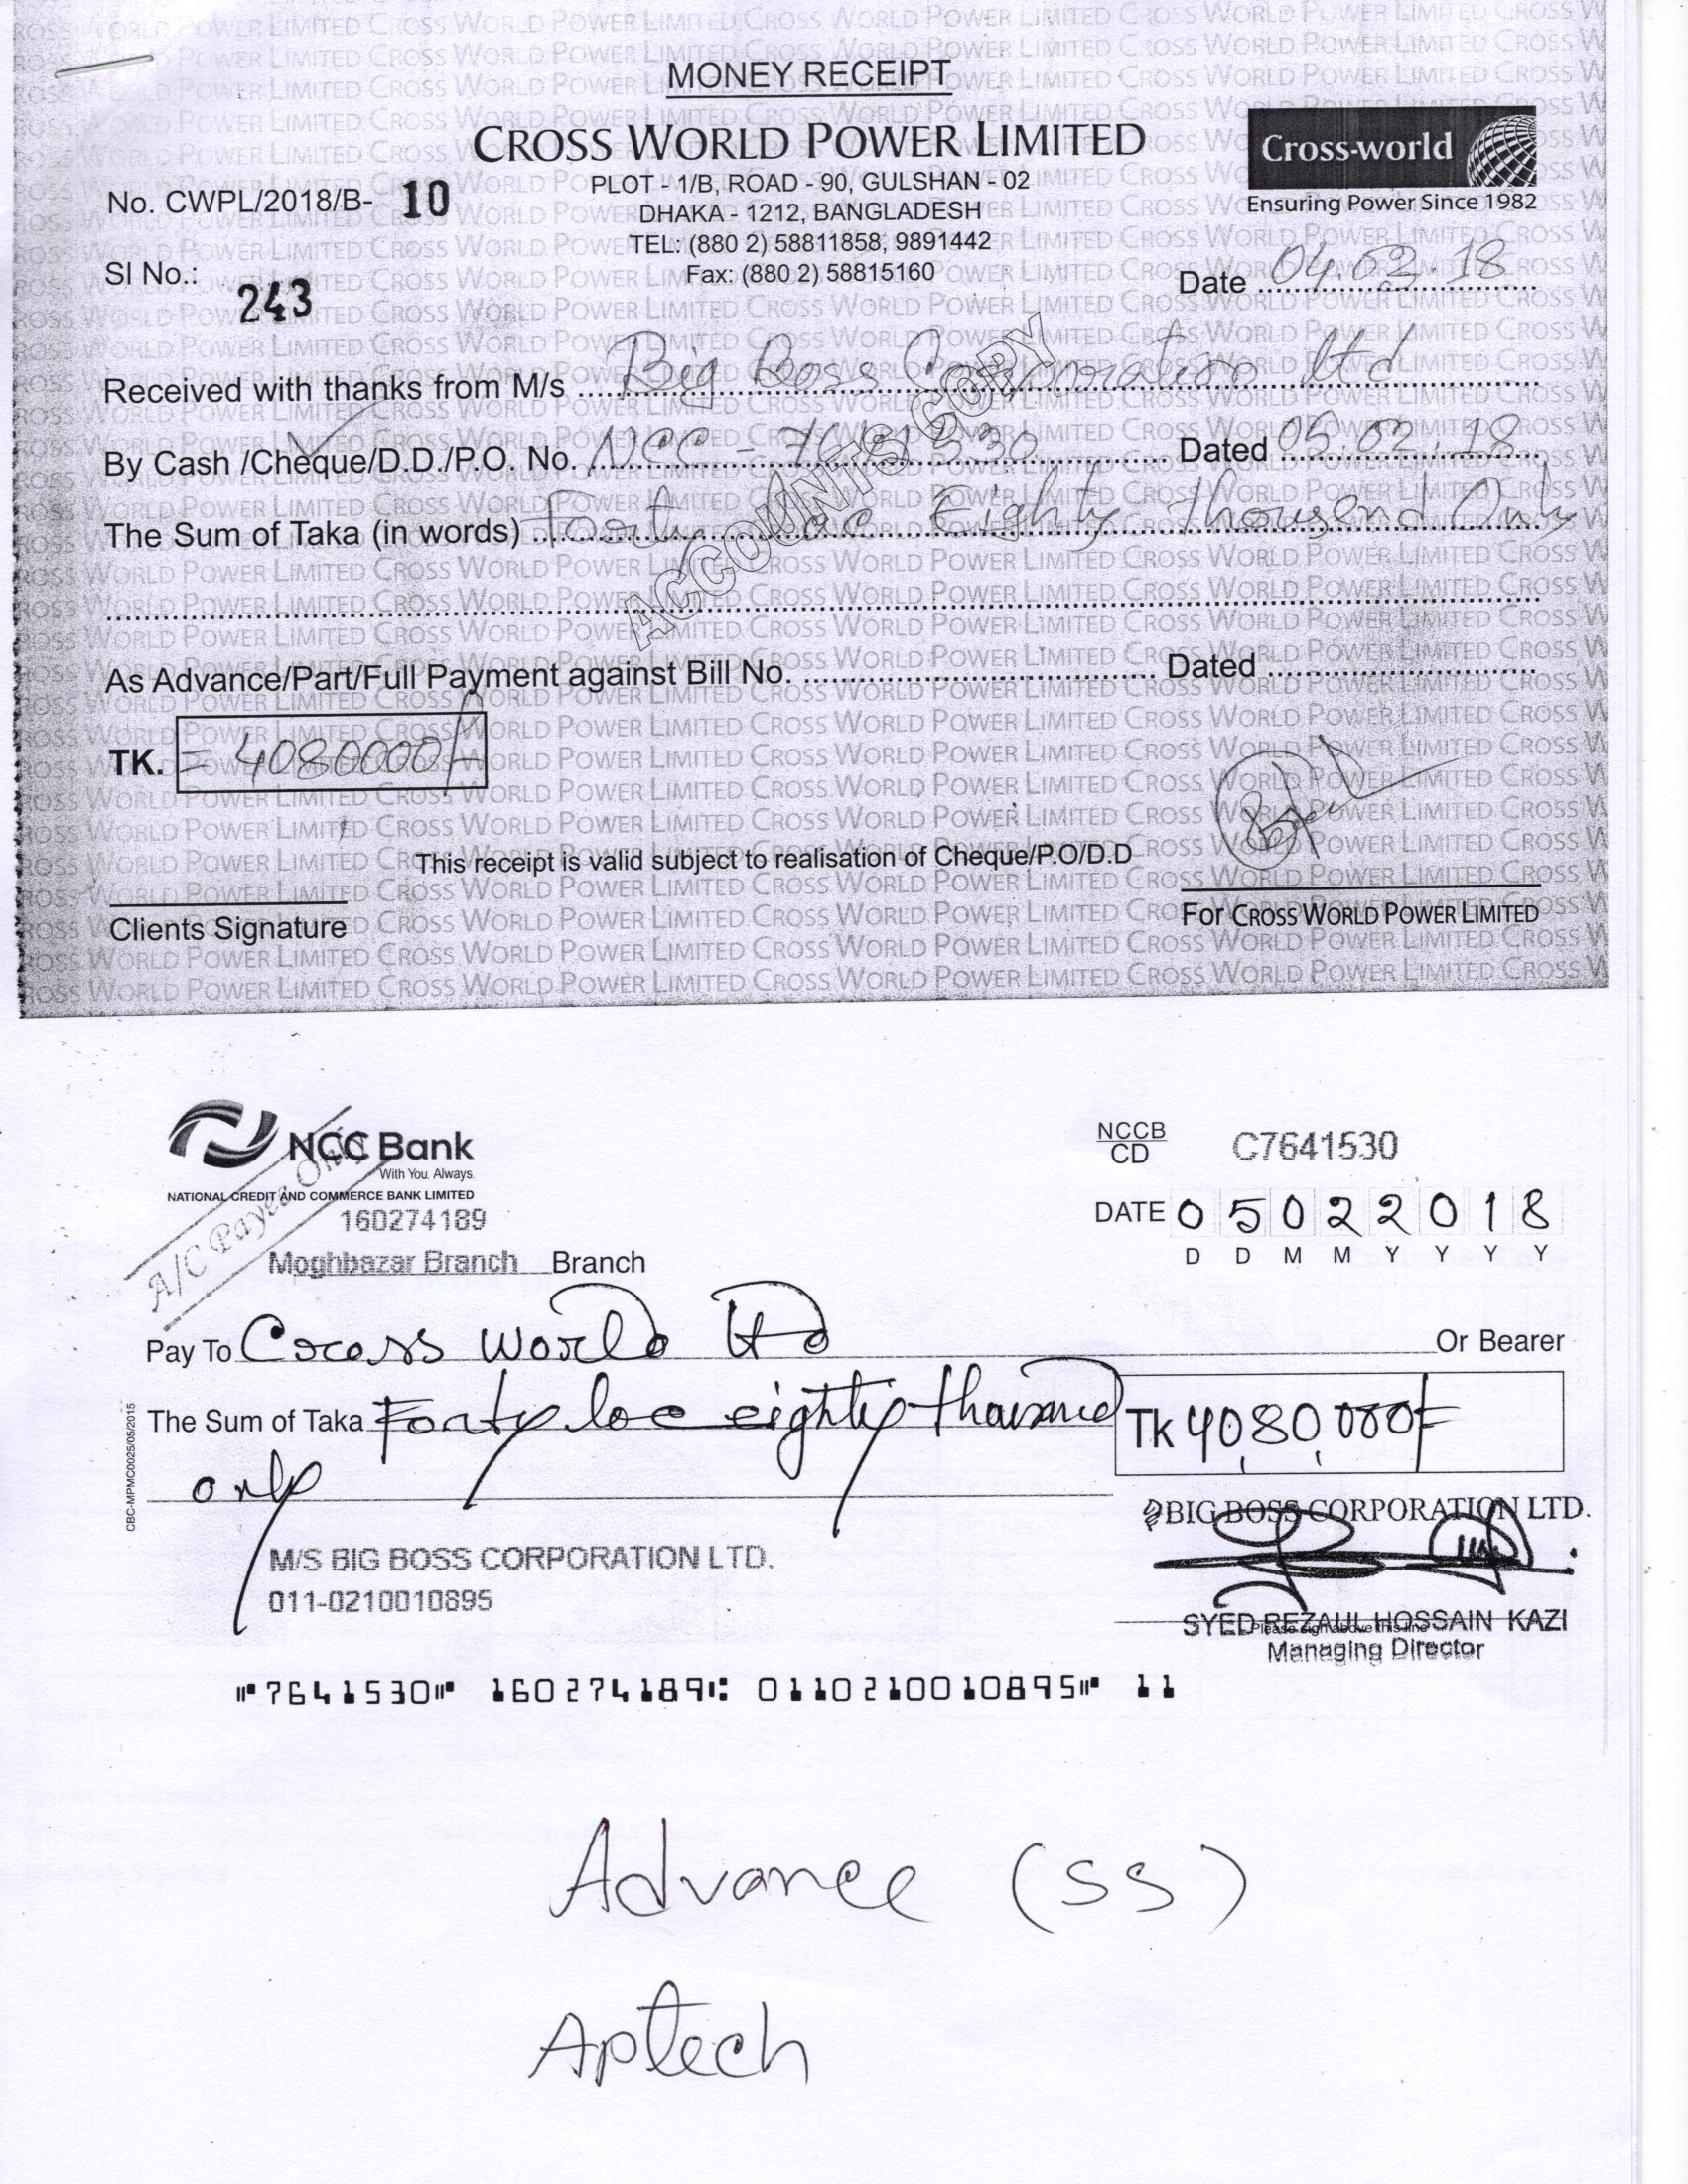 MONEY RECEIPT
CROSS WORLD POWER LIMITED
Cross-world
Ensuring Power Since 1982
PLOT - 1/B, ROAD - 90, GULSHAN - 02
No. CWPL/2018/B- 10
DHAKA - 1212, BANGLADESH
TEL: (880 2) 58811858, 9891442
Fax: (880 2) 58815160
SI No.: 243
Date 04.02.18
Received with thanks from M/s Big Boss Corporation ltd
By Cash /Cheque/D.D./P.O. No. NCC - 7641530 Dated 05.02.18
The Sum of Taka (in words) Forty lac Eighty thousend Only
ACCOUNTS COPY
As Advance/Part/Full Payment against Bill No. Dated
TK. = 4080000/=
This receipt is valid subject to realisation of Cheque/P.O/D.D
Clients Signature
For CROSS WORLD POWER LIMITED
NCC Bank
With You. Always.
NATIONAL CREDIT AND COMMERCE BANK LIMITED
A/C Payee Only
160274189
Moghbazar Branch Branch
NCCB
CD
C7641530
DATE 05022018
D D M M Y Y Y Y
Pay To Cross World Ltd Or Bearer
The Sum of Taka Forty lac eighty thousand
only
Tk 4080,000/=
CBC-MPMC0025/05/2015
BIG BOSS CORPORATION LTD.
M/S BIG BOSS CORPORATION LTD.
011-0210010895
SYED REZAUL HOSSAIN KAZI
Please sign above this line
Managing Director
⑈7641530⑈ 160274189⑆ 0110210010895⑈ 11
Advance (SS)
Aptech